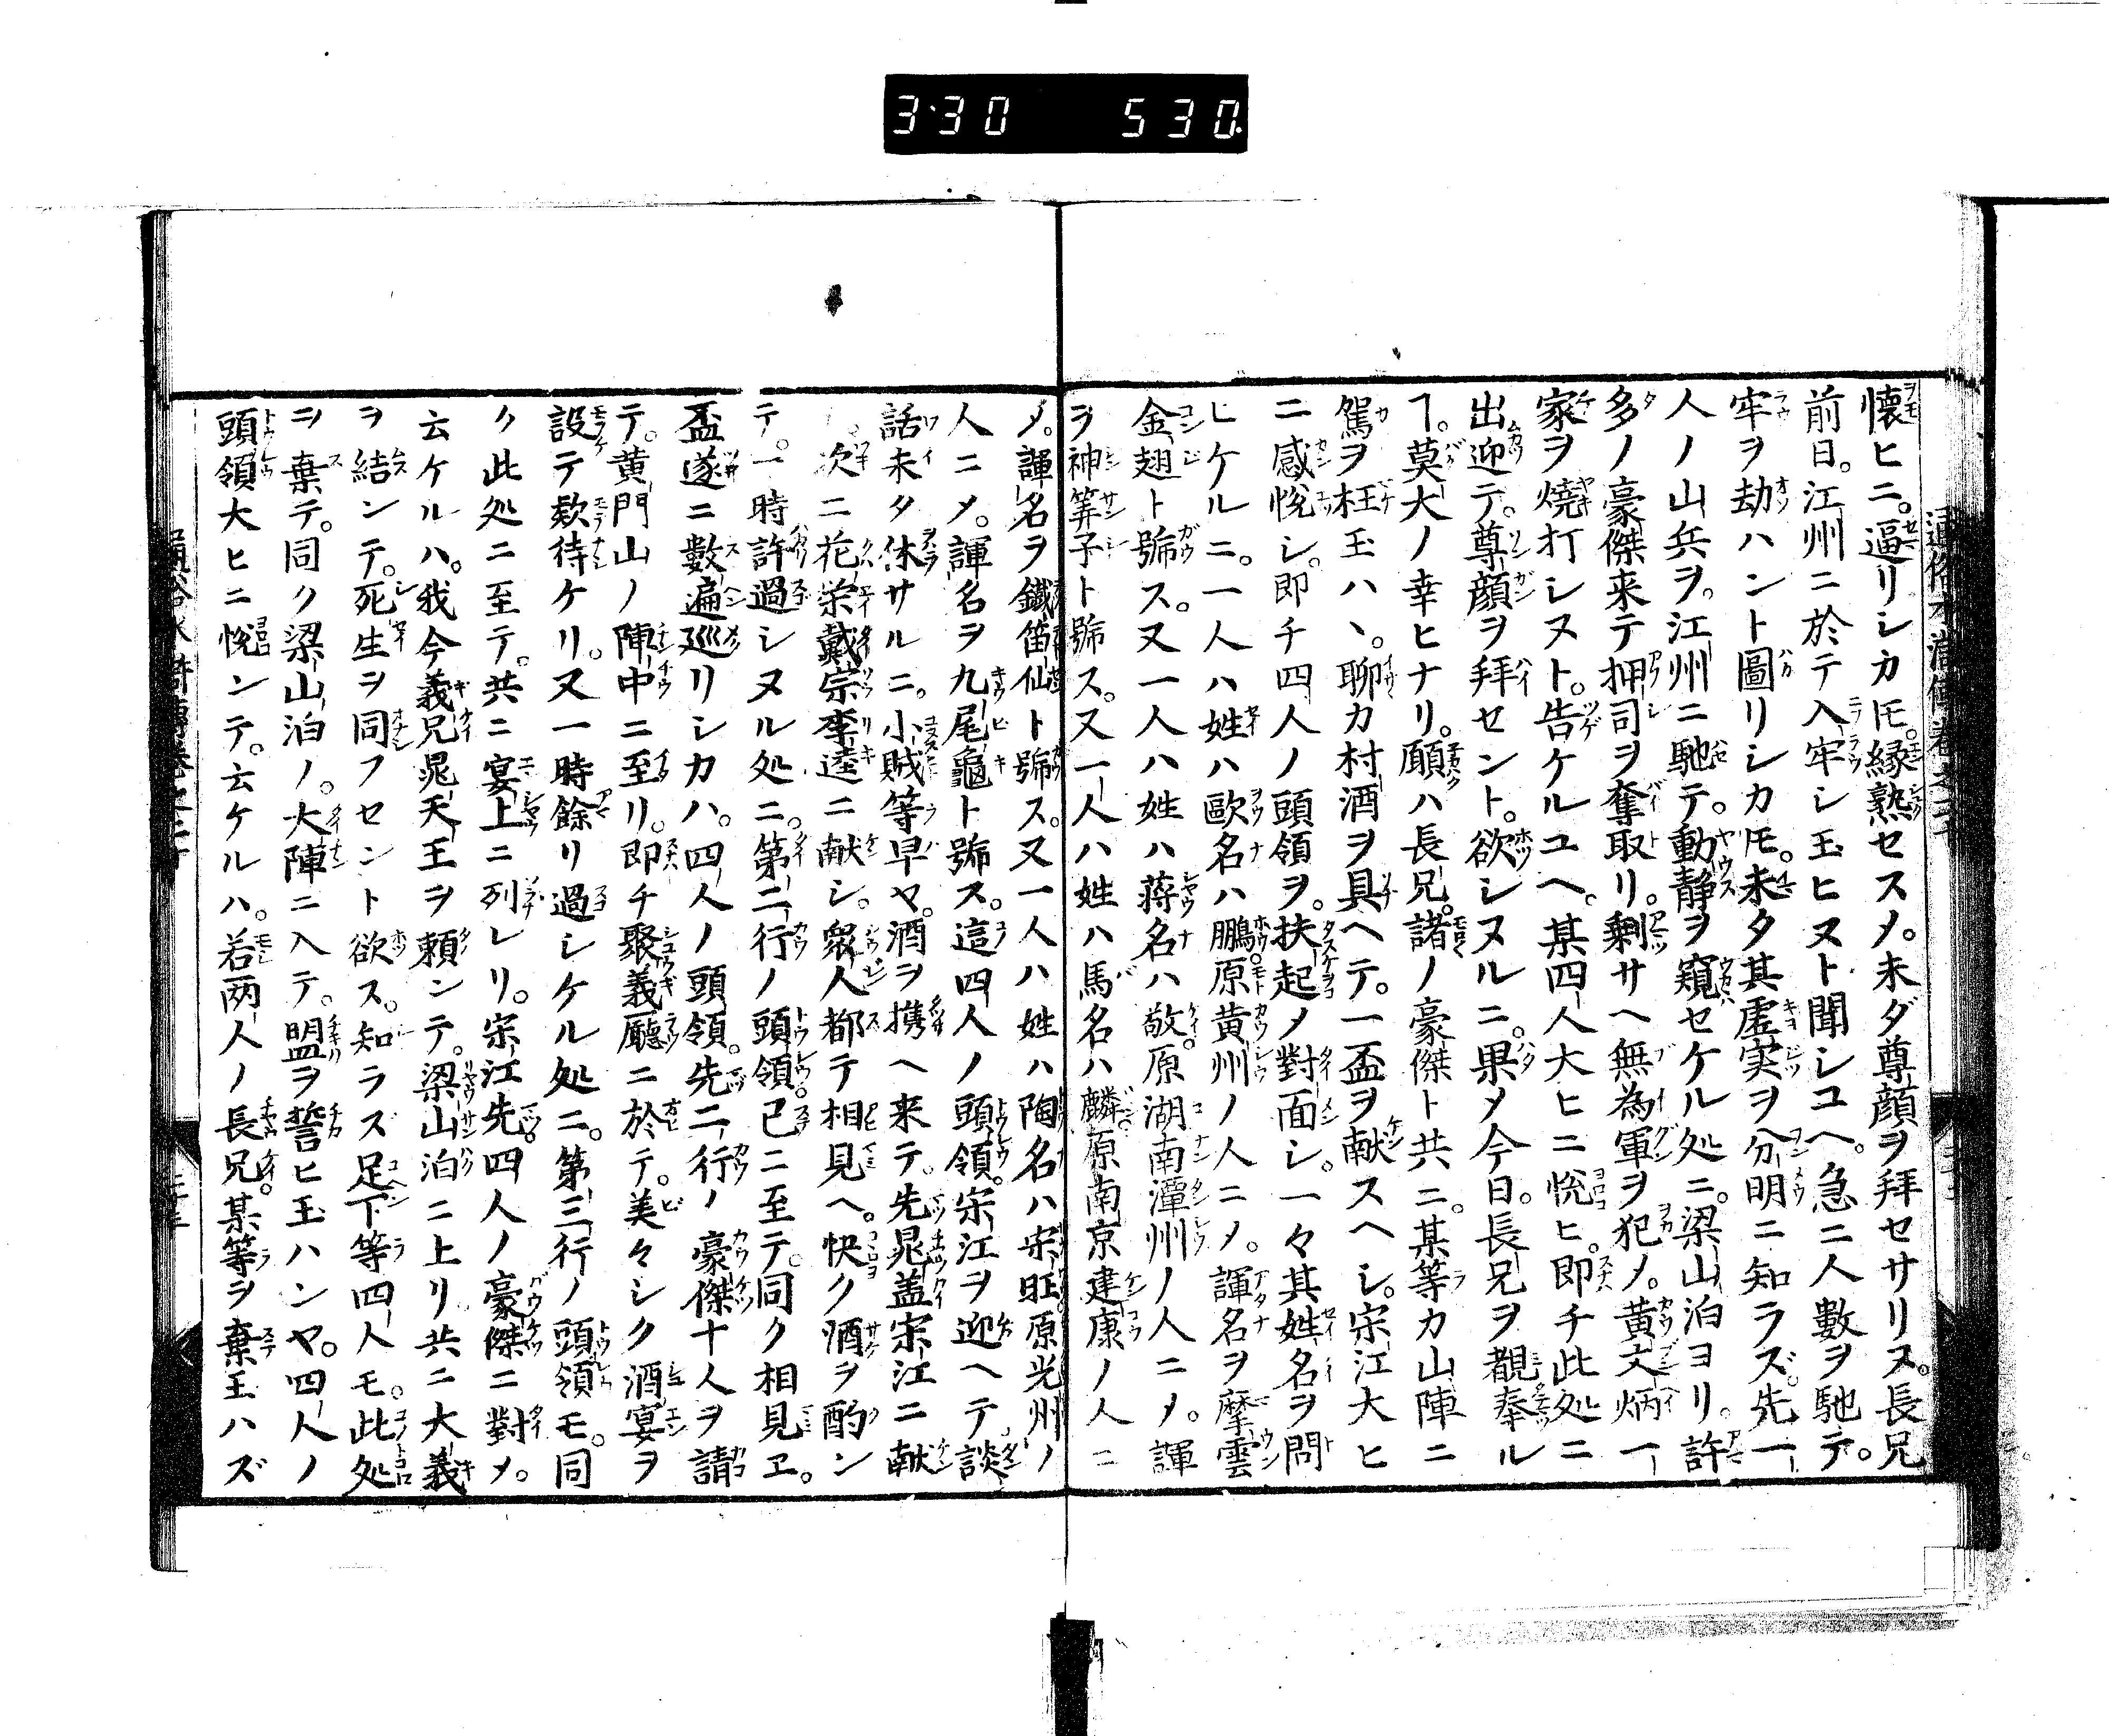 3・30 530.
懐ヒニ。逼リシカ𪜈。縁熟セスメ。未ダ尊顔ヲ拜セサリヌ。長兄
前日。江州ニ於テ入牢シ玉ヒヌト聞シユヘ。急ニ人數ヲ馳テ。
牢ヲ劫ハント圖リシカ𪜈。未タ其虚実ヲ分明ニ知ラズ。先一
人ノ山兵ヲ。江州ニ馳テ。動静ヲ窺セケル処ニ。梁山泊ヨリ。許
多ノ豪傑来テ押司ヲ奪取リ。剰サヘ無為軍ヲ犯メ。黄文炳一
家ヲ燒打シヌト。告ケルユヘ。某四人大ヒニ悦ヒ。即チ此処ニ
出迎テ。尊顔ヲ拜セント。欲シヌルニ。果メ今日。長兄ヲ覩奉ル
ヿ。莫大ノ幸ヒナリ。願ハ長兄。諸ノ豪傑ト共ニ。某等カ山陣ニ
駕ヲ枉玉ハヽ。聊カ村酒ヲ具ヘテ。一盃ヲ献スヘシ。宋江大ヒ
ニ感悦シ。即チ四人ノ頭領ヲ。扶起メ對面シ。一々其姓名ヲ問
ヒケルニ。一人ハ姓ハ歐名ハ鵬。原黄州ノ人ニメ。諢名ヲ摩雲
金翅ト號ス。又一人ハ姓ハ蒋名ハ敬。原湖南潭州ノ人ニメ。諢
ヲ神筭子ト號ス。又一人ハ姓ハ馬名ハ麟。原南京建康ノ人ニ
メ。諢名ヲ鐵笛仙ト號ス。又一人ハ姓ハ陶名ハ宋旺。原光州ノ
人ニメ。諢名ヲ九尾龜ト號ス。這四人ノ頭領。宋江ヲ迎ヘテ。談
話未タ休サルニ。小賊等早ヤ。酒ヲ携ヘ来テ。先晁盖宋江ニ献
次ニ花栄戴宗李逵ニ献シ。衆人都テ相見ヘ。快ク酒ヲ酌ン
テ。一時許過シヌル処ニ。第二行ノ頭領。已ニ至テ。同ク相見ヱ。
盃遂ニ數遍巡リシカハ。四人ノ頭領。先二行ノ豪傑十人ヲ請
テ。黄門山ノ陣中ニ至リ。即チ聚義廳ニ於テ。美々シク酒宴ヲ
設テ欵待ケリ。又一時餘リ過シケル処ニ。第三行ノ頭領モ。同
ク此処ニ至テ。共ニ宴上ニ列レリ。宋江先四人ノ豪傑ニ對メ。
云ケルハ。我今義兄晁天王ヲ頼ンテ。梁山泊ニ上リ。共ニ大義
ヲ結ンテ。死生ヲ同フセント欲ス。知ラズ足下等四人モ。此処
ヲ棄テ。同ク梁山泊ノ。大陣ニ入テ。盟ヲ誓ヒ玉ハンヤ。四人ノ
頭領大ヒニ悦ンテ。云ケルハ。若両人ノ長兄。某等ヲ棄玉ハズ